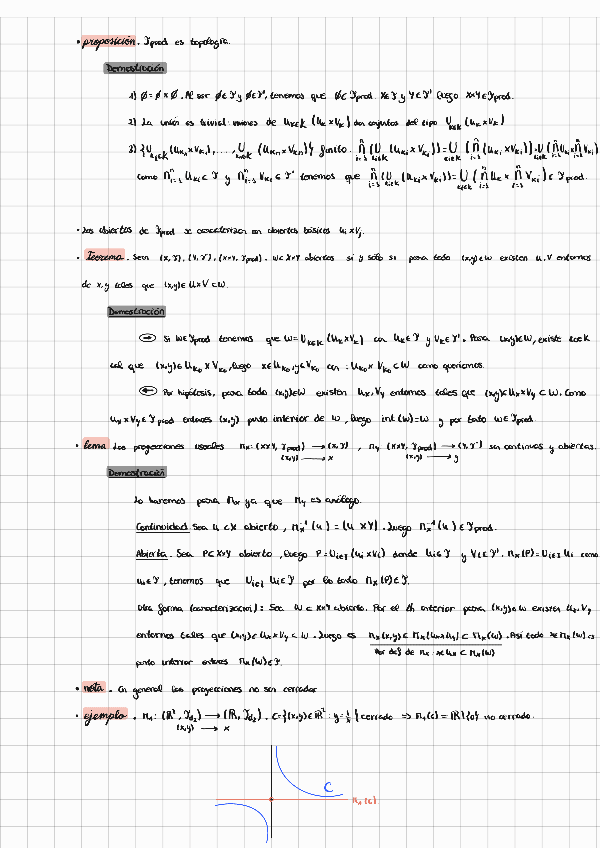 • proposición. 𝒯prod es topología.
Demostración
1) ∅ = ∅ x ∅. Al ser ∅∈𝒯 y ∅∈𝒯', tenemos que ∅∈ 𝒯prod. X∈𝒯 y Y∈𝒯' luego XxY∈𝒯prod.
2) La unión es trivial: uniones de ∪k∈K (Uk x Vk) son conjuntos del tipo ∪k∈K (Uk x Vk)
3) {∪k₁∈K (Uk₁ x Vk₁), ...., ∪kn∈K (Ukn x Vkn)} finito. ⋂ⁿi=1 (∪ki∈K (Uki x Vki)) = ∪ki∈K (⋂ⁿi=1 (Uki x Vki)) = ∪(⋂ⁿi=1 Uki x ⋂ⁿi=1 Vki)
como ⋂ⁿi=1 Uki ∈ 𝒯 y ⋂ⁿi=1 Vki ∈ 𝒯' tenemos que ⋂ⁿi=1 (∪ki∈K (Uki x Vki)) = ∪ki∈K (⋂ⁿi=1 Uk x ⋂ⁿi=1 Vki) ∈ 𝒯prod.
• Los abiertos de 𝒯prod se caracterizan con abiertos básicos Ui x Vj.
• Teorema. Sean (X, 𝒯), (Y, 𝒯'), (XxY, 𝒯prod). W⊂XxY abiertos si y sólo si para todo (x,y)∈W existen U, V entornos
de x, y tales que (x,y)∈ U x V ⊂ W.
Demostración
⇒ Si W∈𝒯prod tenemos que W = ∪k∈K (Uk x Vk) con Uk∈𝒯 y Vk∈𝒯'. Para (x,y)∈W, existe k₀∈K
tal que (x,y)∈ Uk₀ x Vk₀, luego x∈Uk₀, y∈Vk₀ con : Uk₀ x Vk₀ ⊂ W como queríamos.
⇐ Por hipótesis, para todo (x,y)∈W existen Ux, Vy entornos tales que (x,y)∈Ux x Vy ⊂ W. Como
Ux x Vy ∈ 𝒯prod entonces (x,y) punto interior de W, luego int(W)=W y por tanto W∈𝒯prod.
• lema Las proyecciones usuales πx: (XxY, 𝒯prod) → (X, 𝒯) , πy (XxY, 𝒯prod) → (Y, 𝒯') son continuas y abiertas.
(x,y) → x (x,y) → y
Demostración
Lo haremos para πx ya que πy es análogo.
Continuidad. Sea U ⊂ X abierto, πx⁻¹(U) = (U x Y). Luego πx⁻¹(U) ∈ 𝒯prod.
Abierta. Sea P⊂XxY abierto, luego P = ∪i∈I (Ui x Vi) donde Ui∈𝒯 y Vi∈𝒯'. πx(P) = ∪i∈I Ui como
Ui∈𝒯, tenemos que ∪i∈I Ui∈𝒯 por lo tanto πx(P)∈𝒯.
Otra forma (caracterización): Sea W ⊂ XxY abierto. Por el th anterior para (x,y)∈W existen Ux, Vy
entornos tales que (x,y)∈ Ux x Vy ⊂ W. Luego es πx(x,y) ⊂ πx(Ux x Vy) ⊂ πx(W). Así todo x∈πx(W) es
Por def de πx: x∈Ux ⊂ πx(W)
punto interior entonces πx(W)∈𝒯.
• nota. En general las proyecciones no son cerradas
• ejemplo. π₁: (ℝ², 𝒯d₂) → (ℝ, 𝒯d₂). C={(x,y)∈ℝ²: y=1/x} cerrado ⇒ π₁(C) = ℝ\{0} no cerrado.
(x,y) → x
C
π₁(C)